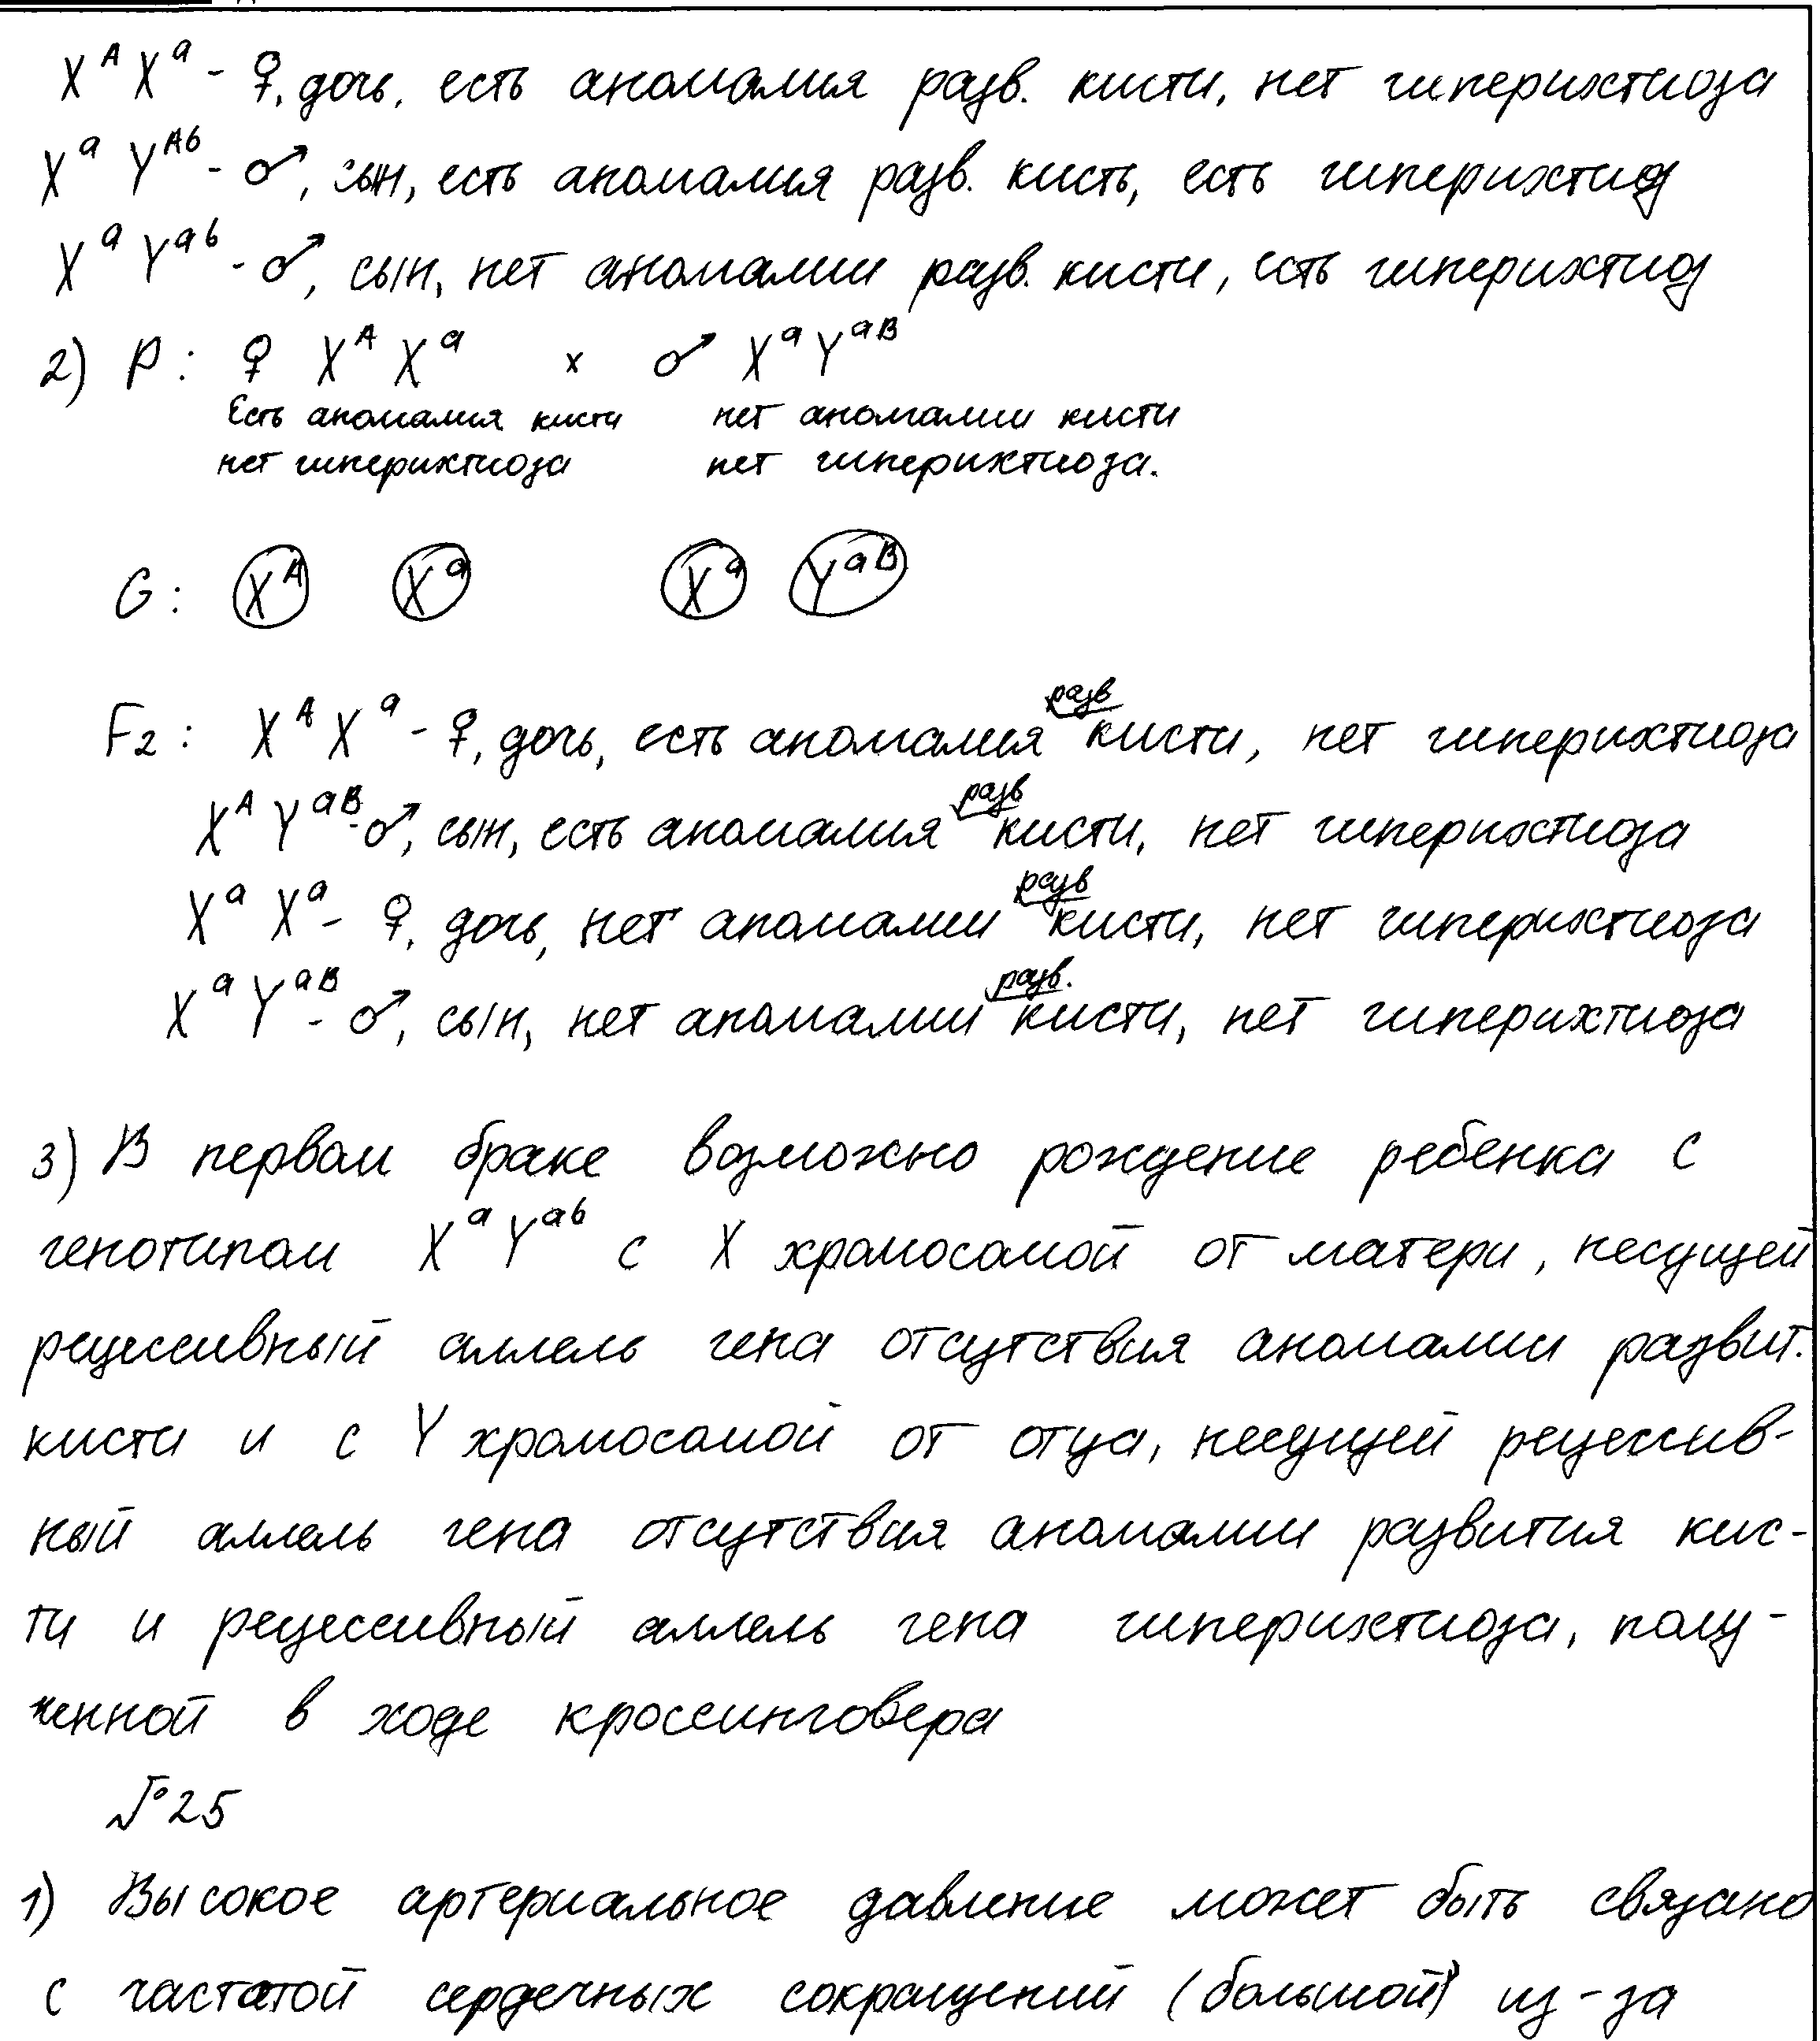 X^A X^a - ♀, дочь, есть аномалия разв. кисти, нет гиперихтиоза
X^a Y^Ab - ♂, сын, есть аномалия разв. кисть, есть гиперихтиоз
X^a Y^ab - ♂, сын, нет аномалии разв. кисти, есть гиперихтиоз
2) P: ♀ X^A X^a x ♂ X^a Y^aB
Есть аномалия кисти нет аномалии кисти
нет гиперихтиоза нет гиперихтиоза.
G: X^A X^a X^a Y^aB
F2: X^A X^a - ♀, дочь, есть аномалия разв кисти, нет гиперихтиоза
X^A Y^aB - ♂, сын, есть аномалия разв кисти, нет гиперихтиоза
X^a X^a - ♀, дочь, нет аномалии разв кисти, нет гиперихтиоза
X^a Y^aB - ♂, сын, нет аномалии разв. кисти, нет гиперихтиоза
3) В первом браке возможно рождение ребенка с
генотипом X^a Y^ab с X хромосомой от матери, несущей
рецессивный аллель гена отсутствия аномалии развит.
кисти и с Y хромосомой от отца, несущей рецессив-
ный аллель гена отсутствия аномалии развития кис-
ти и рецессивный аллель гена гиперихтиоза, полу-
ченной в ходе кроссинговера
№25
1) Высокое артериальное давление может быть связано
с частотой сердечных сокращений (большой) из-за